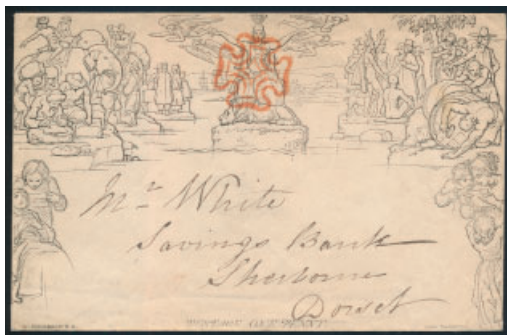 Mr White
Savings Bank
Sherborne
Dorset
POSTAGE ONE PENNY